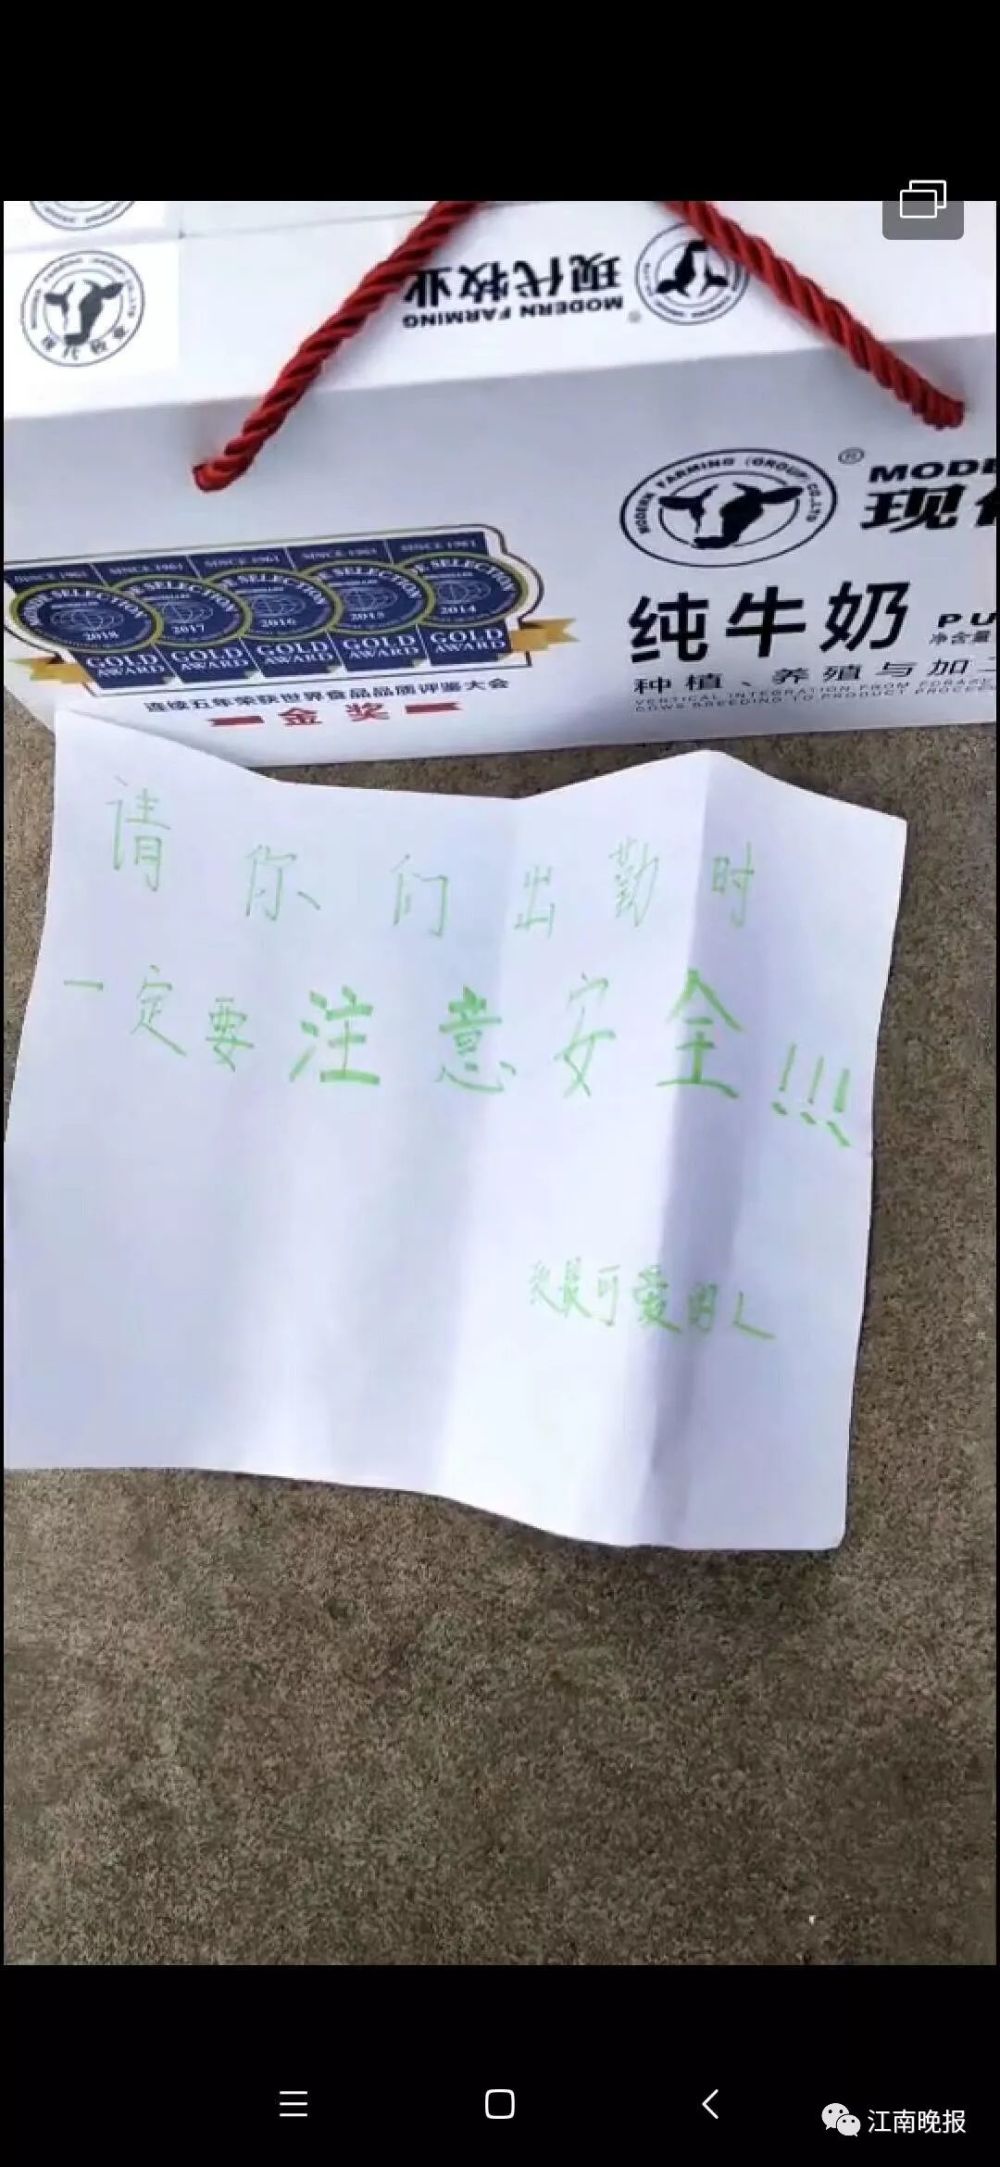 现代牧业
MODERN FARMING
MODERN FARMING (GROUP) CO.,LTD
MODE
现代
纯牛奶 PU
净含量
种植、养殖与加工
SINCE 1961 SINCE 1961 SINCE 1961 SINCE 1961 SINCE 1961
MONDE SELECTION
2018 2017 2016 2015 2014
GOLD AWARD GOLD AWARD GOLD AWARD GOLD AWARD GOLD AWARD
连续五年荣获世界食品品质评鉴大会
金奖
请你们出勤时
一定要注意安全!!!
致最可爱的人
江南晚报